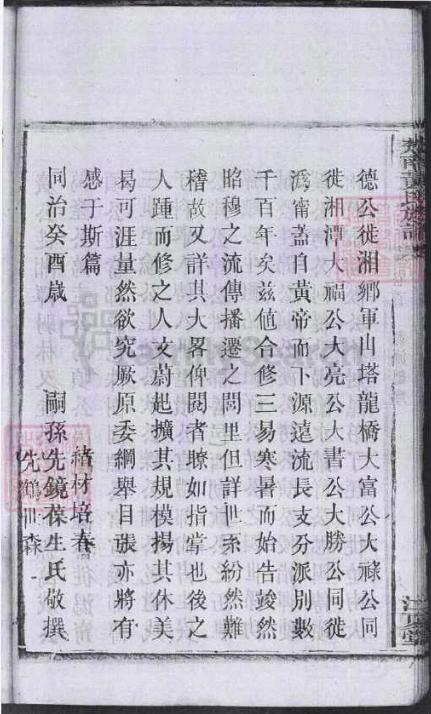 德公徙湘鄉軍山塔龍橋大富公大祿公同
徙湘潭大福公大亮公大書公大勝公同徙
溈甯蓋自黃帝而下源遠流長支分派別數
千百年矣茲値合修三易寒暑而始告竣然
昭穆之流傳播遷之閭里但詳世系紛然難
稽故又詳其大畧俾閱者瞭如指掌也後之
人踵而修之人文蔚起擴其規模揚其休美
曷可涯量然欲究厥原委綱舉目張亦將有
感于斯篇
同治癸酉歲
緒材培春
嗣孫先鏡葆生氏敬撰
先鶴 森